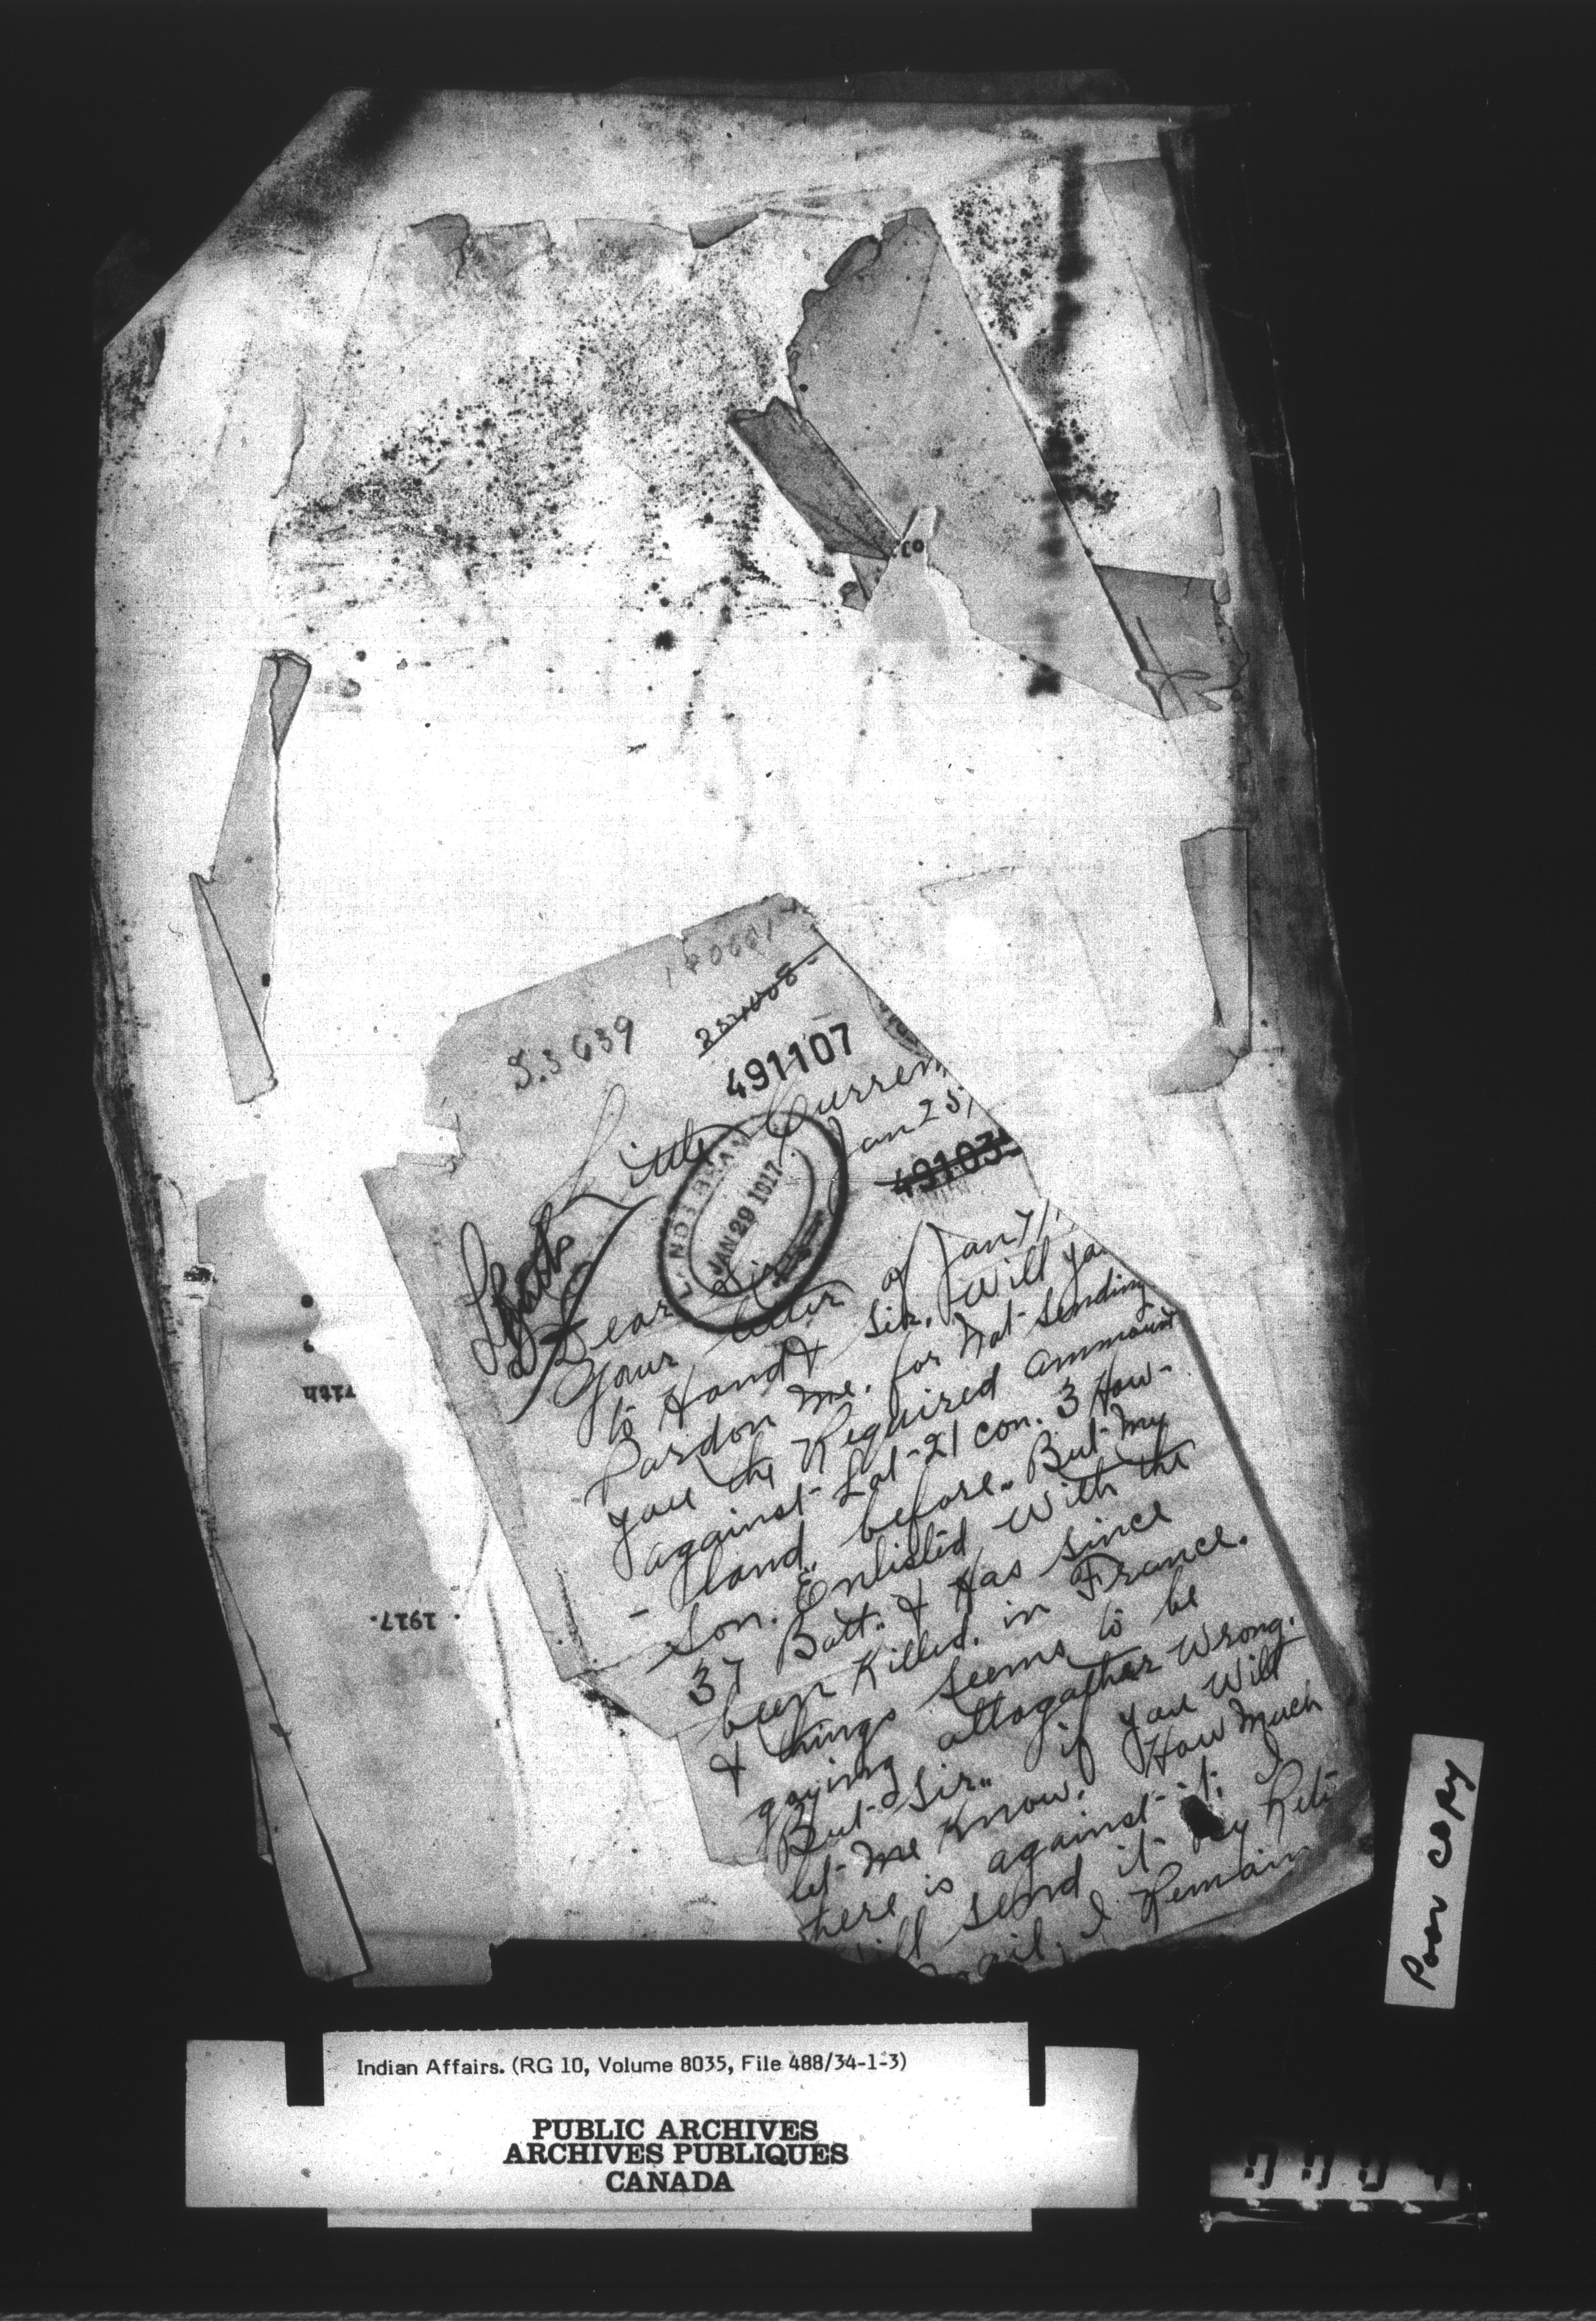 180601
S.3639
491107
Little Current
Jan 25/
49103
LANDS BRANCH
JAN 29 1917
Dear Sir
Your letter of Jan 7/
to Hand & Sir. Will you
Pardon me. for Not Sending
you the Required ammount
against Lot 21 con. 3 How-
- land, before. But My
Son. Enlisted With the
37 Batt. & Has since
been Killed. in France.
& things seems to be
going altogather Wrong.
But Sir. if you Will
let Me Know. How Much
there is against it. I
Will send it by Reti
Mail. I Remain
with
1917.
Poor Copy
Indian Affairs. (RG 10, Volume 8035, File 488/34-1-3)
PUBLIC ARCHIVES
ARCHIVES PUBLIQUES
CANADA